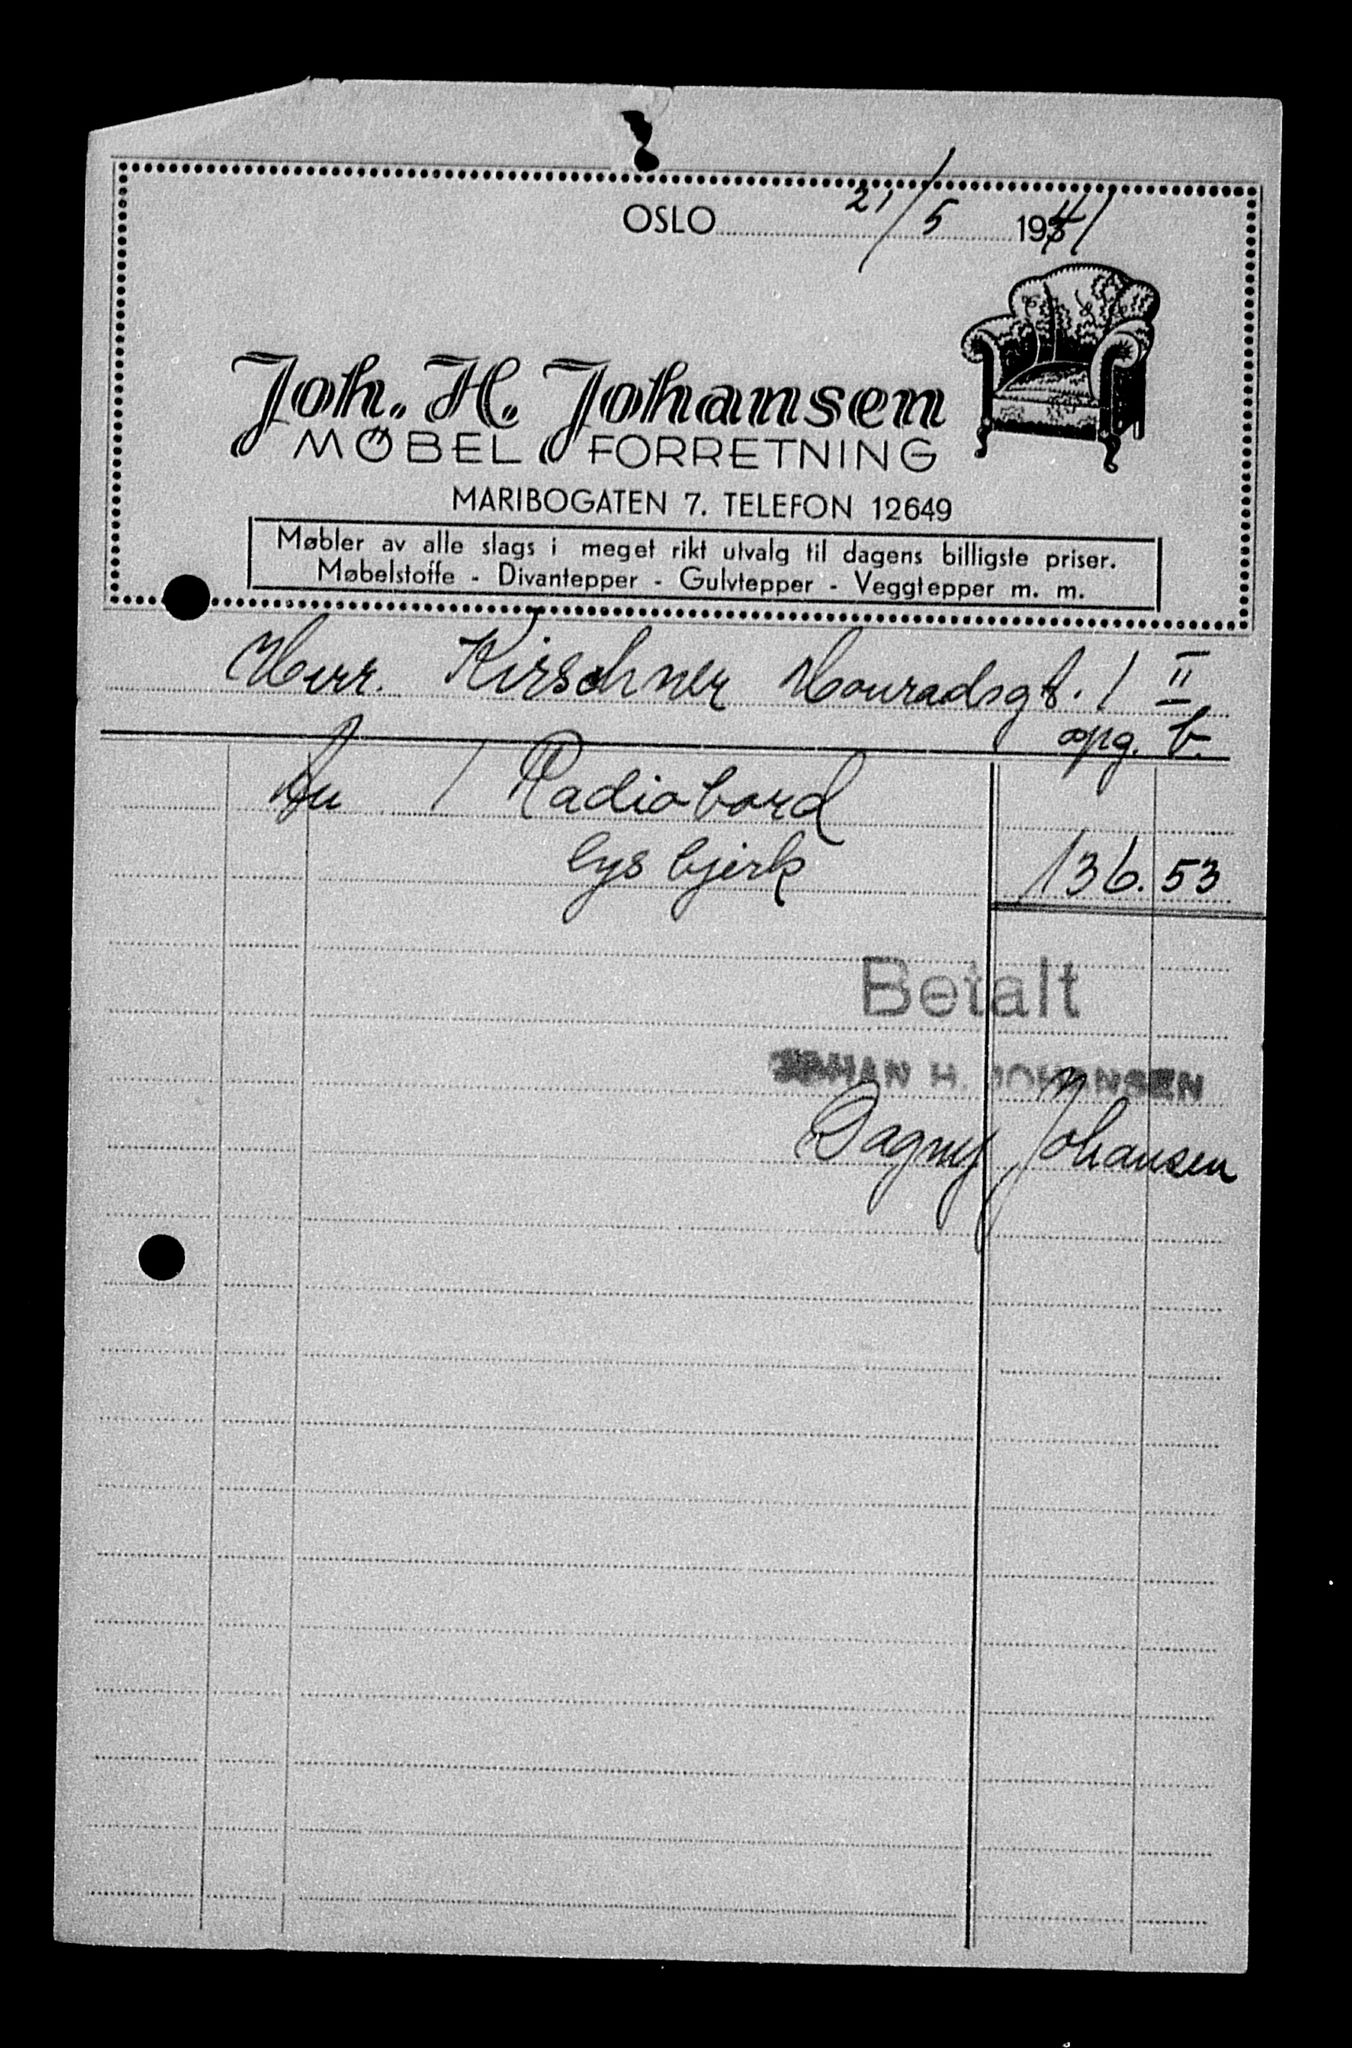 OSLO 21/5 1941
Joh. H. Johansen
MØBEL FORRETNING
MARIBOGATEN 7. TELEFON 12649
Møbler av alle slags i meget rikt utvalg til dagens billigste priser.
Møbelstoffe - Divantepper - Gulvtepper - Veggtepper m. m.
Herr. Kirschner Konradsgt. 1 II
opg. b.
An 1 Radiobord
lys bjerk 136.53
Betalt
JOHAN H. JOHANSEN
Dagny Johansen